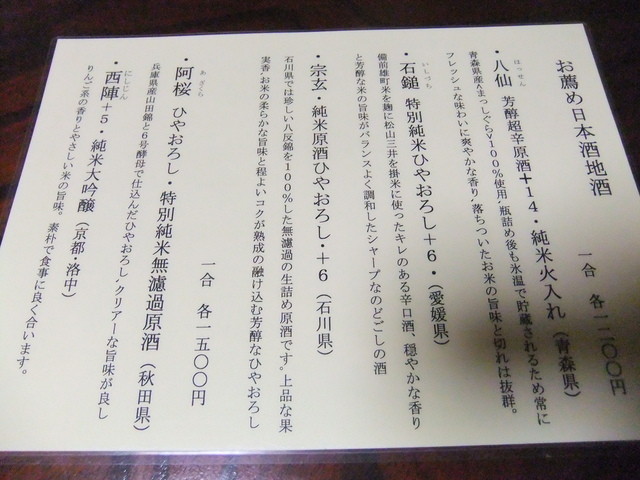 お薦め日本酒地酒
一合 各一二〇〇円
・八仙 芳醇超辛原酒+14・純米火入れ(青森県)
はっせん
青森県産“まっしぐら”100%使用、瓶詰め後も氷温で貯蔵されるため常に
フレッシュな味わいに爽やかな香り、落ちついたお米の旨味と切れは抜群。
・石鎚 特別純米ひやおろし+6・(愛媛県)
いしづち
備前雄町米を麹に松山三井を掛米に使ったキレのある辛口酒、穏やかな香り
と芳醇な米の旨味がバランスよく調和したシャープなのどごしの酒
・宗玄・純米原酒ひやおろし・+6(石川県)
石川県では珍しい八反錦を100%した無濾過の生詰め原酒です。上品な果
実香、お米の柔らかな旨味と程よいコクが熟成の融け込む芳醇なひやおろし
一合 各一五〇〇円
・阿桜 ひやおろし・特別純米無濾過原酒(秋田県)
あざくら
兵庫県産山田錦と6号酵母で仕込んだひやおろし・クリアーな旨味が良し
・西陣+5・純米大吟醸(京都・洛中)
にしじん
りんご系の香りとやさしい米の旨味。素朴で食事に良く合います。